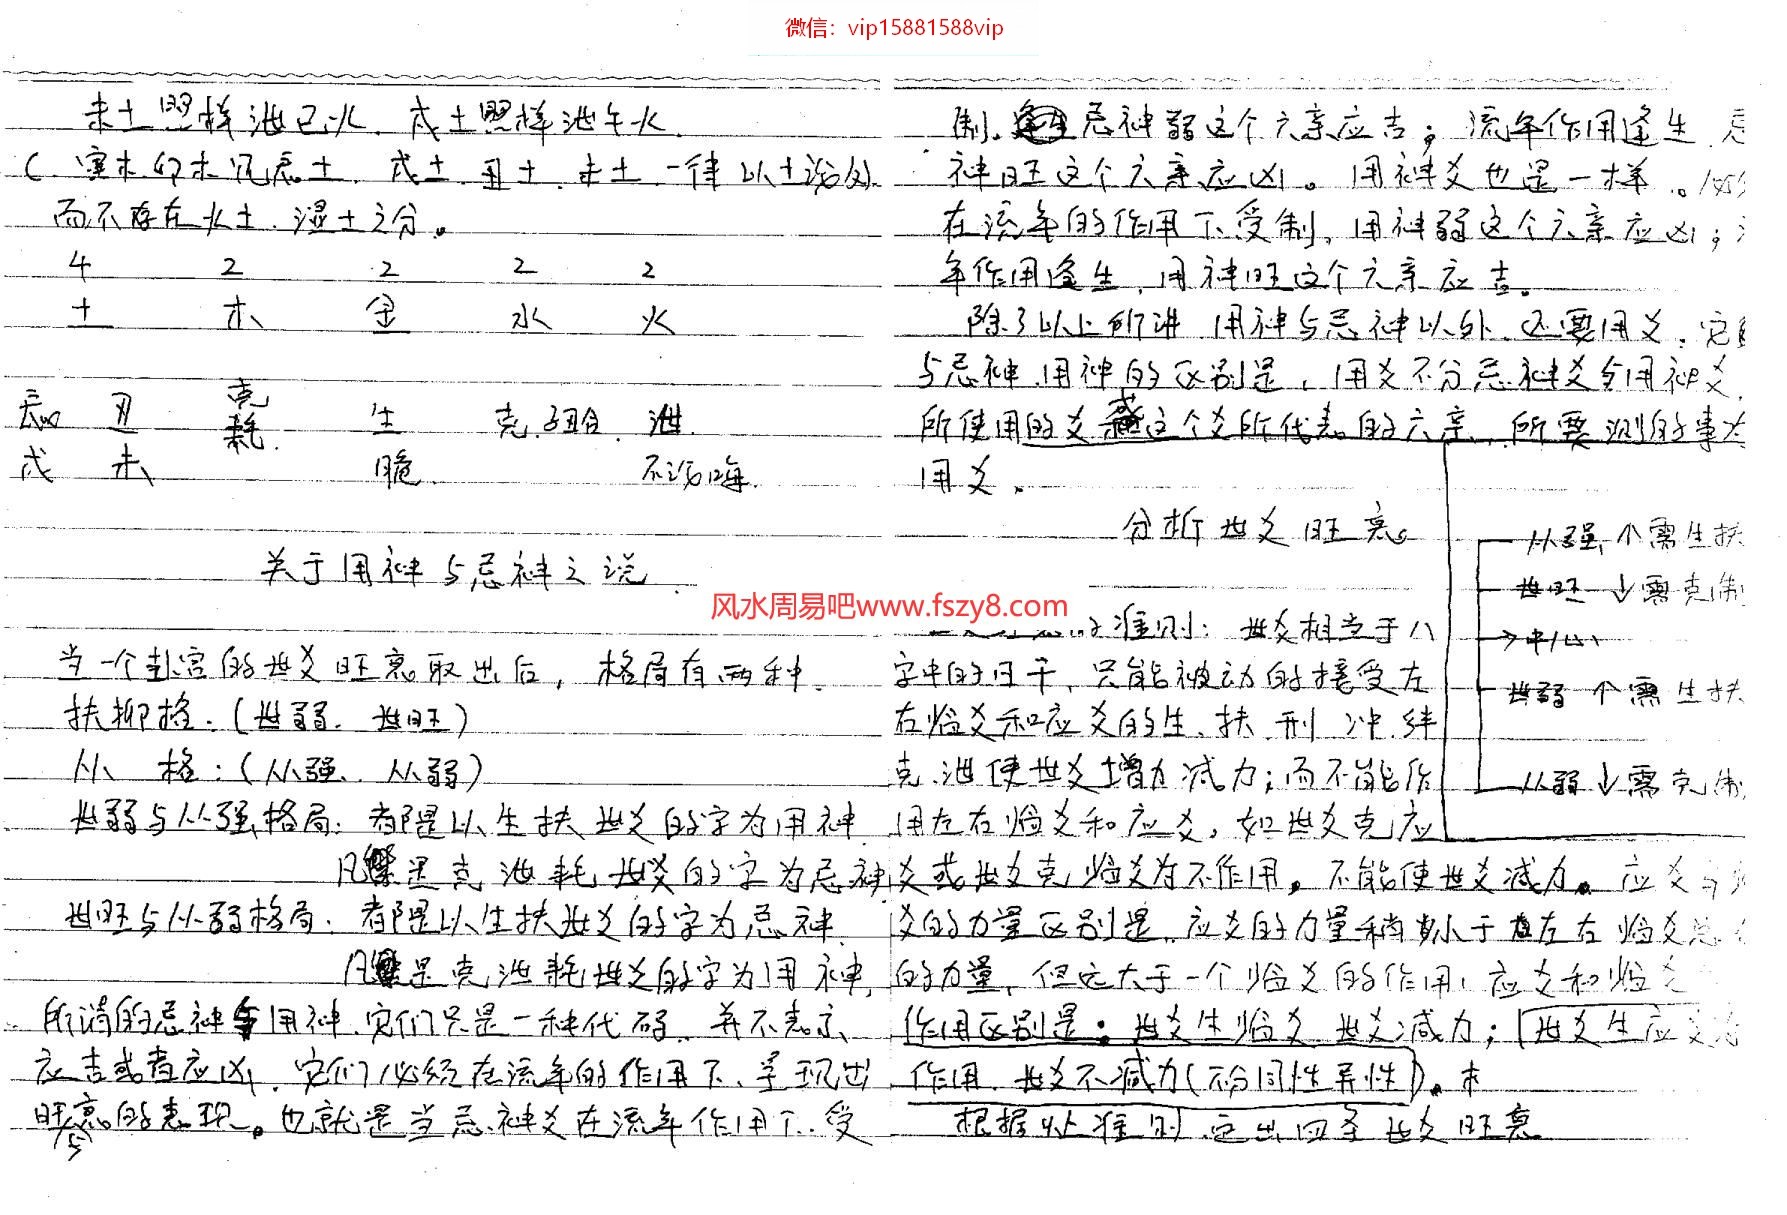 微信：vip15881588vip
未土照样泄巳火．戌土照样泄午火．
（寅木．卯木见辰土．戌土．丑土．未土．一律以土论处）．
而不存在火土．湿土之分。
4 2 2 2 2
土 木 金 水 火
辰 丑 克耗 生 克．组合． 泄．
戌 未 脆． 不论晦．
关于用神与忌神之说．
当一个卦宫的世爻旺衰取出后，格局有两种．
扶抑格．（世弱．世旺）
从 格：（从强．从弱）
世弱与从强格局：都是以生扶世爻的字为用神．
凡是克泄耗世爻的字为忌神．
世旺与从弱格局．都是以生扶世爻的字为忌神．
凡是克泄耗世爻的字为用神．
所谓的忌神与用神．它们只是一种代码．并不表示
应吉或者应凶．它们必须在流年的作用下．呈现出
旺衰的表现。也就是当忌神爻在流年作用下．受
5
制．忌神弱这个六亲应吉；流年作用逢生．忌
神旺这个六亲应凶。用神爻也是一样。
在流年的作用下受制，用神弱这个六亲应凶；
年作用逢生，用神旺这个六亲应吉。
除了以上所讲 用神与忌神以外．还要用爻．
与忌神．用神的区别是，用爻不分忌神爻与用神爻．
所使用的爻或这个爻所代表的六亲．所要测的事为
用爻．
分析世爻旺衰。
从强 ↑需生扶
世旺 ↓需克制
中心
世弱 个需生扶
从弱 ↓需克制
风水周易吧www.fszy8.com
准则：世爻相当于八
字中的日干，只能被动的接受左
右临爻和应爻的生．扶．刑．冲．绊
克．泄使世爻增力减力；而不能作
用左右临爻和应爻，如世爻克应
爻或世爻克临爻为不作用。不能使世爻减力。应爻与
爻的力量区别是．应爻的力量稍小于左右临爻总
的力量，但远大于一个临爻的作用，应爻和临爻
作用区别是：世爻生临爻 世爻减力；世爻生应爻为
作用．世爻不减力（不分同性异性）。
根据以上准则．定出四条世爻旺衰